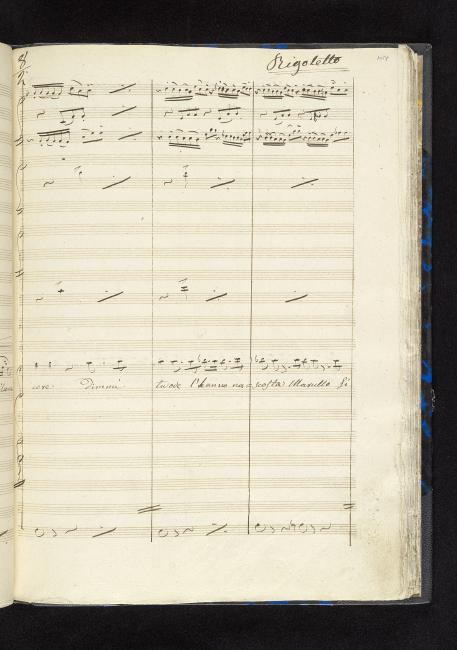 8
Rigoletto
core Dimmi tu ove l'hanno na=scosta Marullo Si